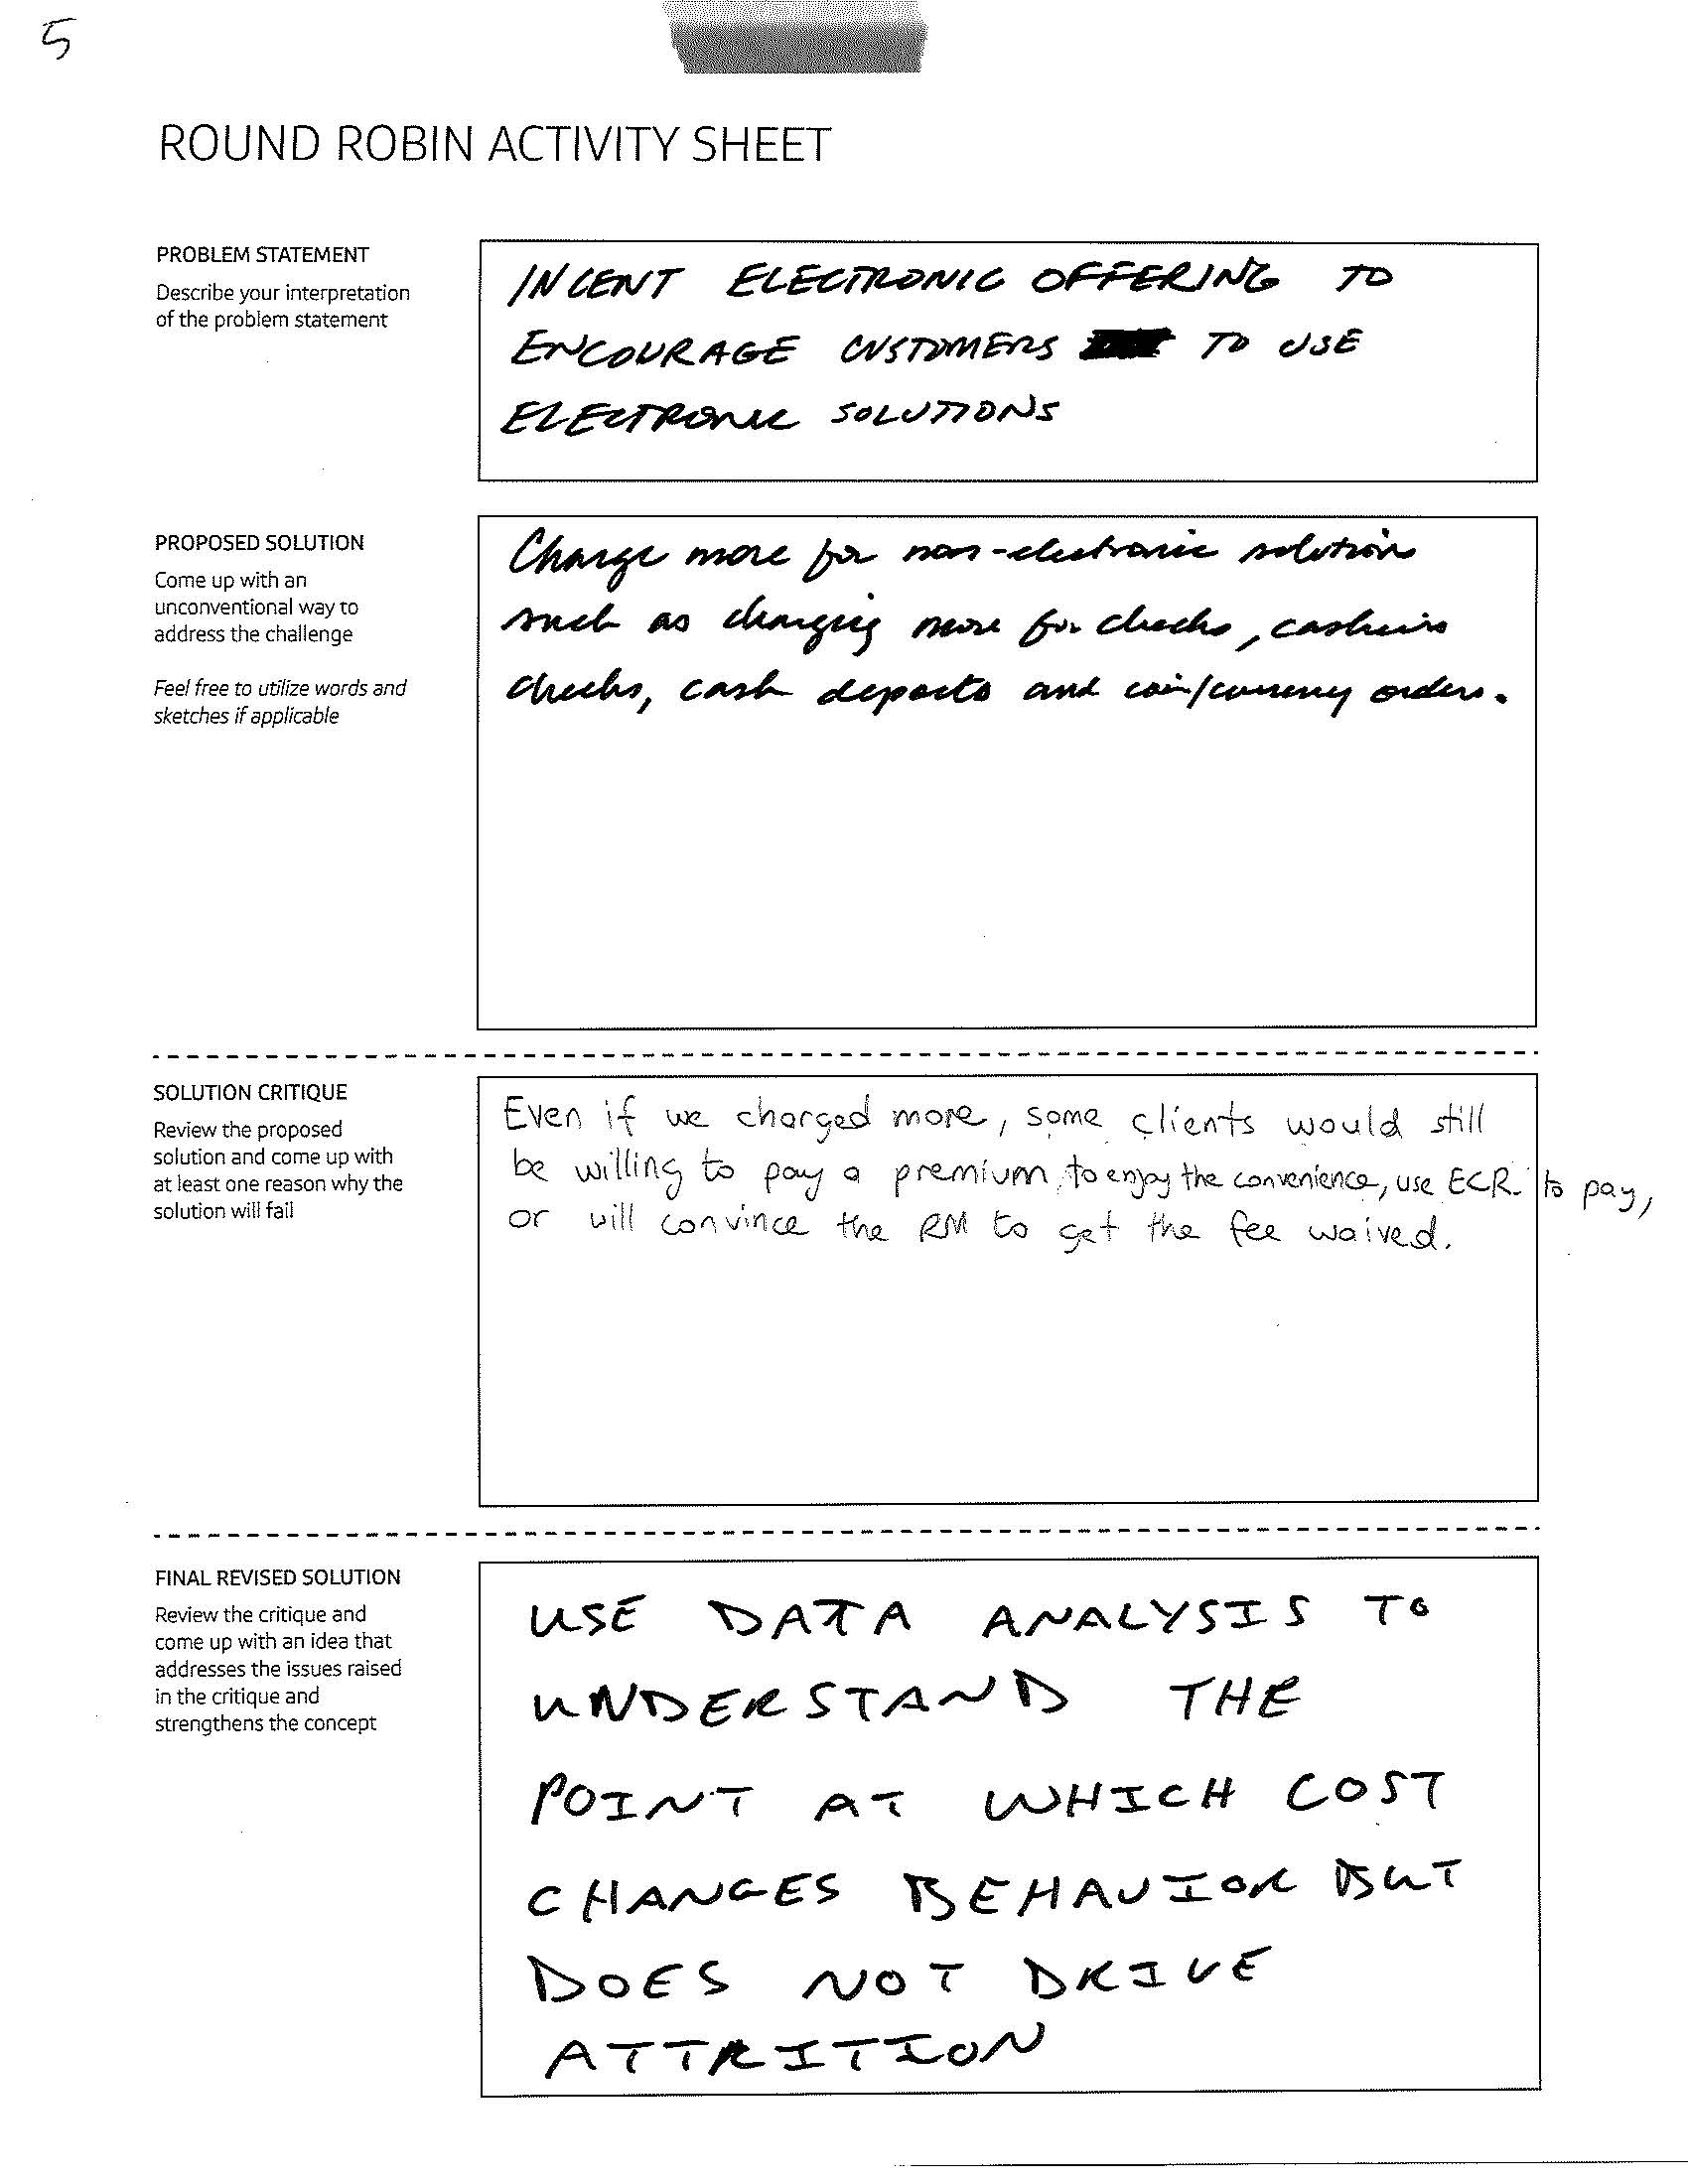 5
ROUND ROBIN ACTIVITY SHEET
PROBLEM STATEMENT
Describe your interpretation
of the problem statement
INCENT ELECTRONIC OFFERING TO
ENCOURAGE CUSTOMERS TO USE
ELECTRONIC SOLUTIONS
PROPOSED SOLUTION
Come up with an
unconventional way to
address the challenge
Feel free to utilize words and
sketches if applicable
Charge more for non-electronic solutions
such as charging more for checks, cashiers
checks, cash deposits and coin/currency orders.
SOLUTION CRITIQUE
Review the proposed
solution and come up with
at least one reason why the
solution will fail
Even if we charged more, some clients would still
be willing to pay a premium, to enjoy the convenience, use ECR to pay,
or will convince the RM to get the fee waived.
FINAL REVISED SOLUTION
Review the critique and
come up with an idea that
addresses the issues raised
in the critique and
strengthens the concept
USE DATA ANALYSIS TO
UNDERSTAND THE
POINT AT WHICH COST
CHANGES BEHAVIOR BUT
DOES NOT DRIVE
ATTRITION